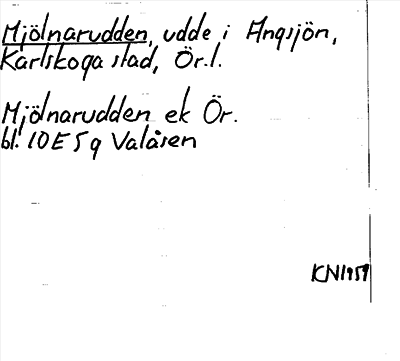 Mjölnarudden, udde i Ångsjön,
Karlskoga stad, Ör.l.
Mjölnarudden ek Ör.
bl. 10E5g Valåsen
KN1959